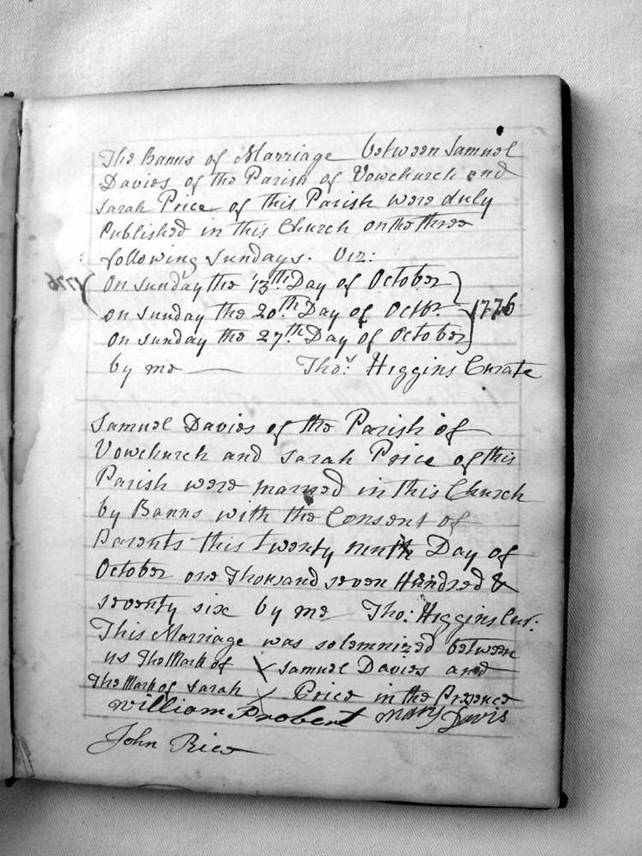 The Banns of Marriage between Samuel
Davies of the Parish of Vowchurch and
Sarah Price of this Parish were duly
Published in this Church on the three
following Sundays. Viz:
On Sunday the 13th Day of October
on Sunday the 20th Day of Octbr. 1776
on Sunday the 27th Day of October
by me — Thos Higgins Curate
Samuel Davies of the Parish of
Vowchurch and Sarah Price of this
Parish were married in this Church
by Banns with the Consent of
Parents this twenty ninth Day of
October one Thousand seven Hundred &
seventy six by me Tho: Higgins Cur:
This Marriage was solemnized between
us The Mark of X Samuel Davies and
The Mark of Sarah X Price in the Presence
William Probert Mary Davis
John Price